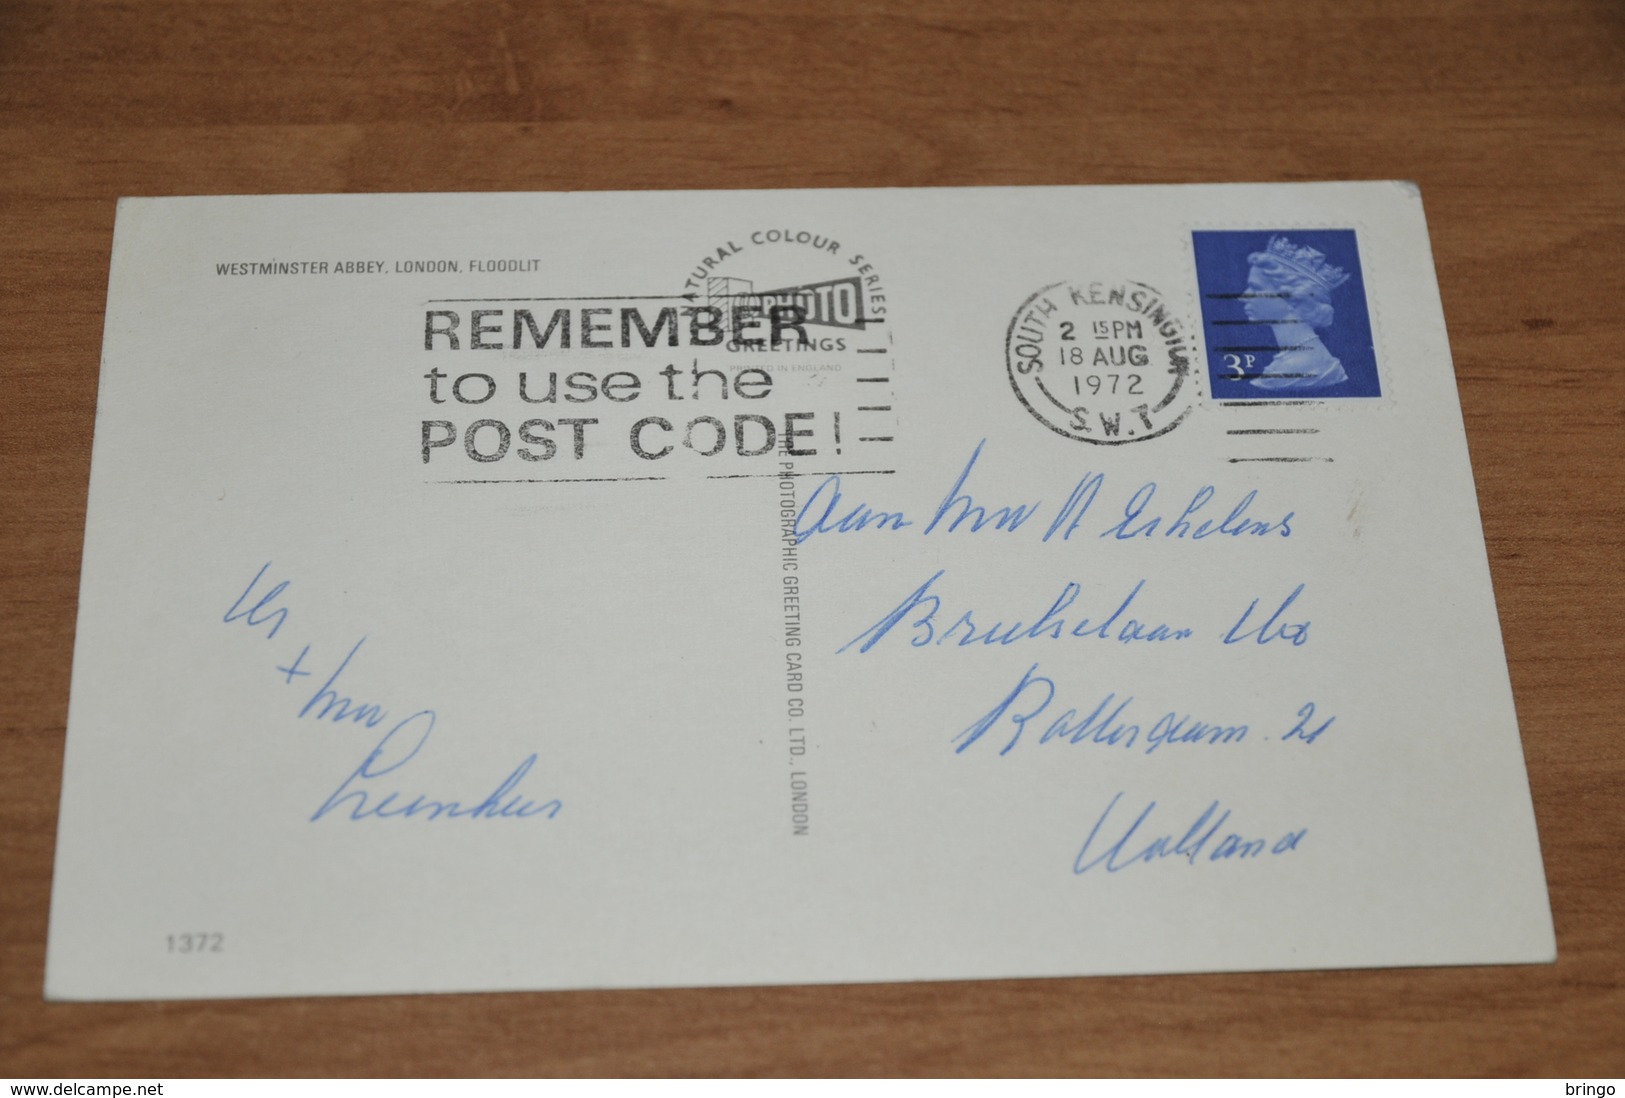 WESTMINSTER ABBEY, LONDON, FLOODLIT
NATURAL COLOUR SERIES
PHOTO
GREETINGS
PRINTED IN ENGLAND
REMEMBER
to use the
POST CODE!
SOUTH KENSINGTON
2 15 PM
18 AUG
1972
S.W.7
3P
THE PHOTOGRAPHIC GREETING CARD CO. LTD., LONDON
Aan Mw
Rotterdam 21
Holland
+ Mw
1372
www.delcampe.net
bringo